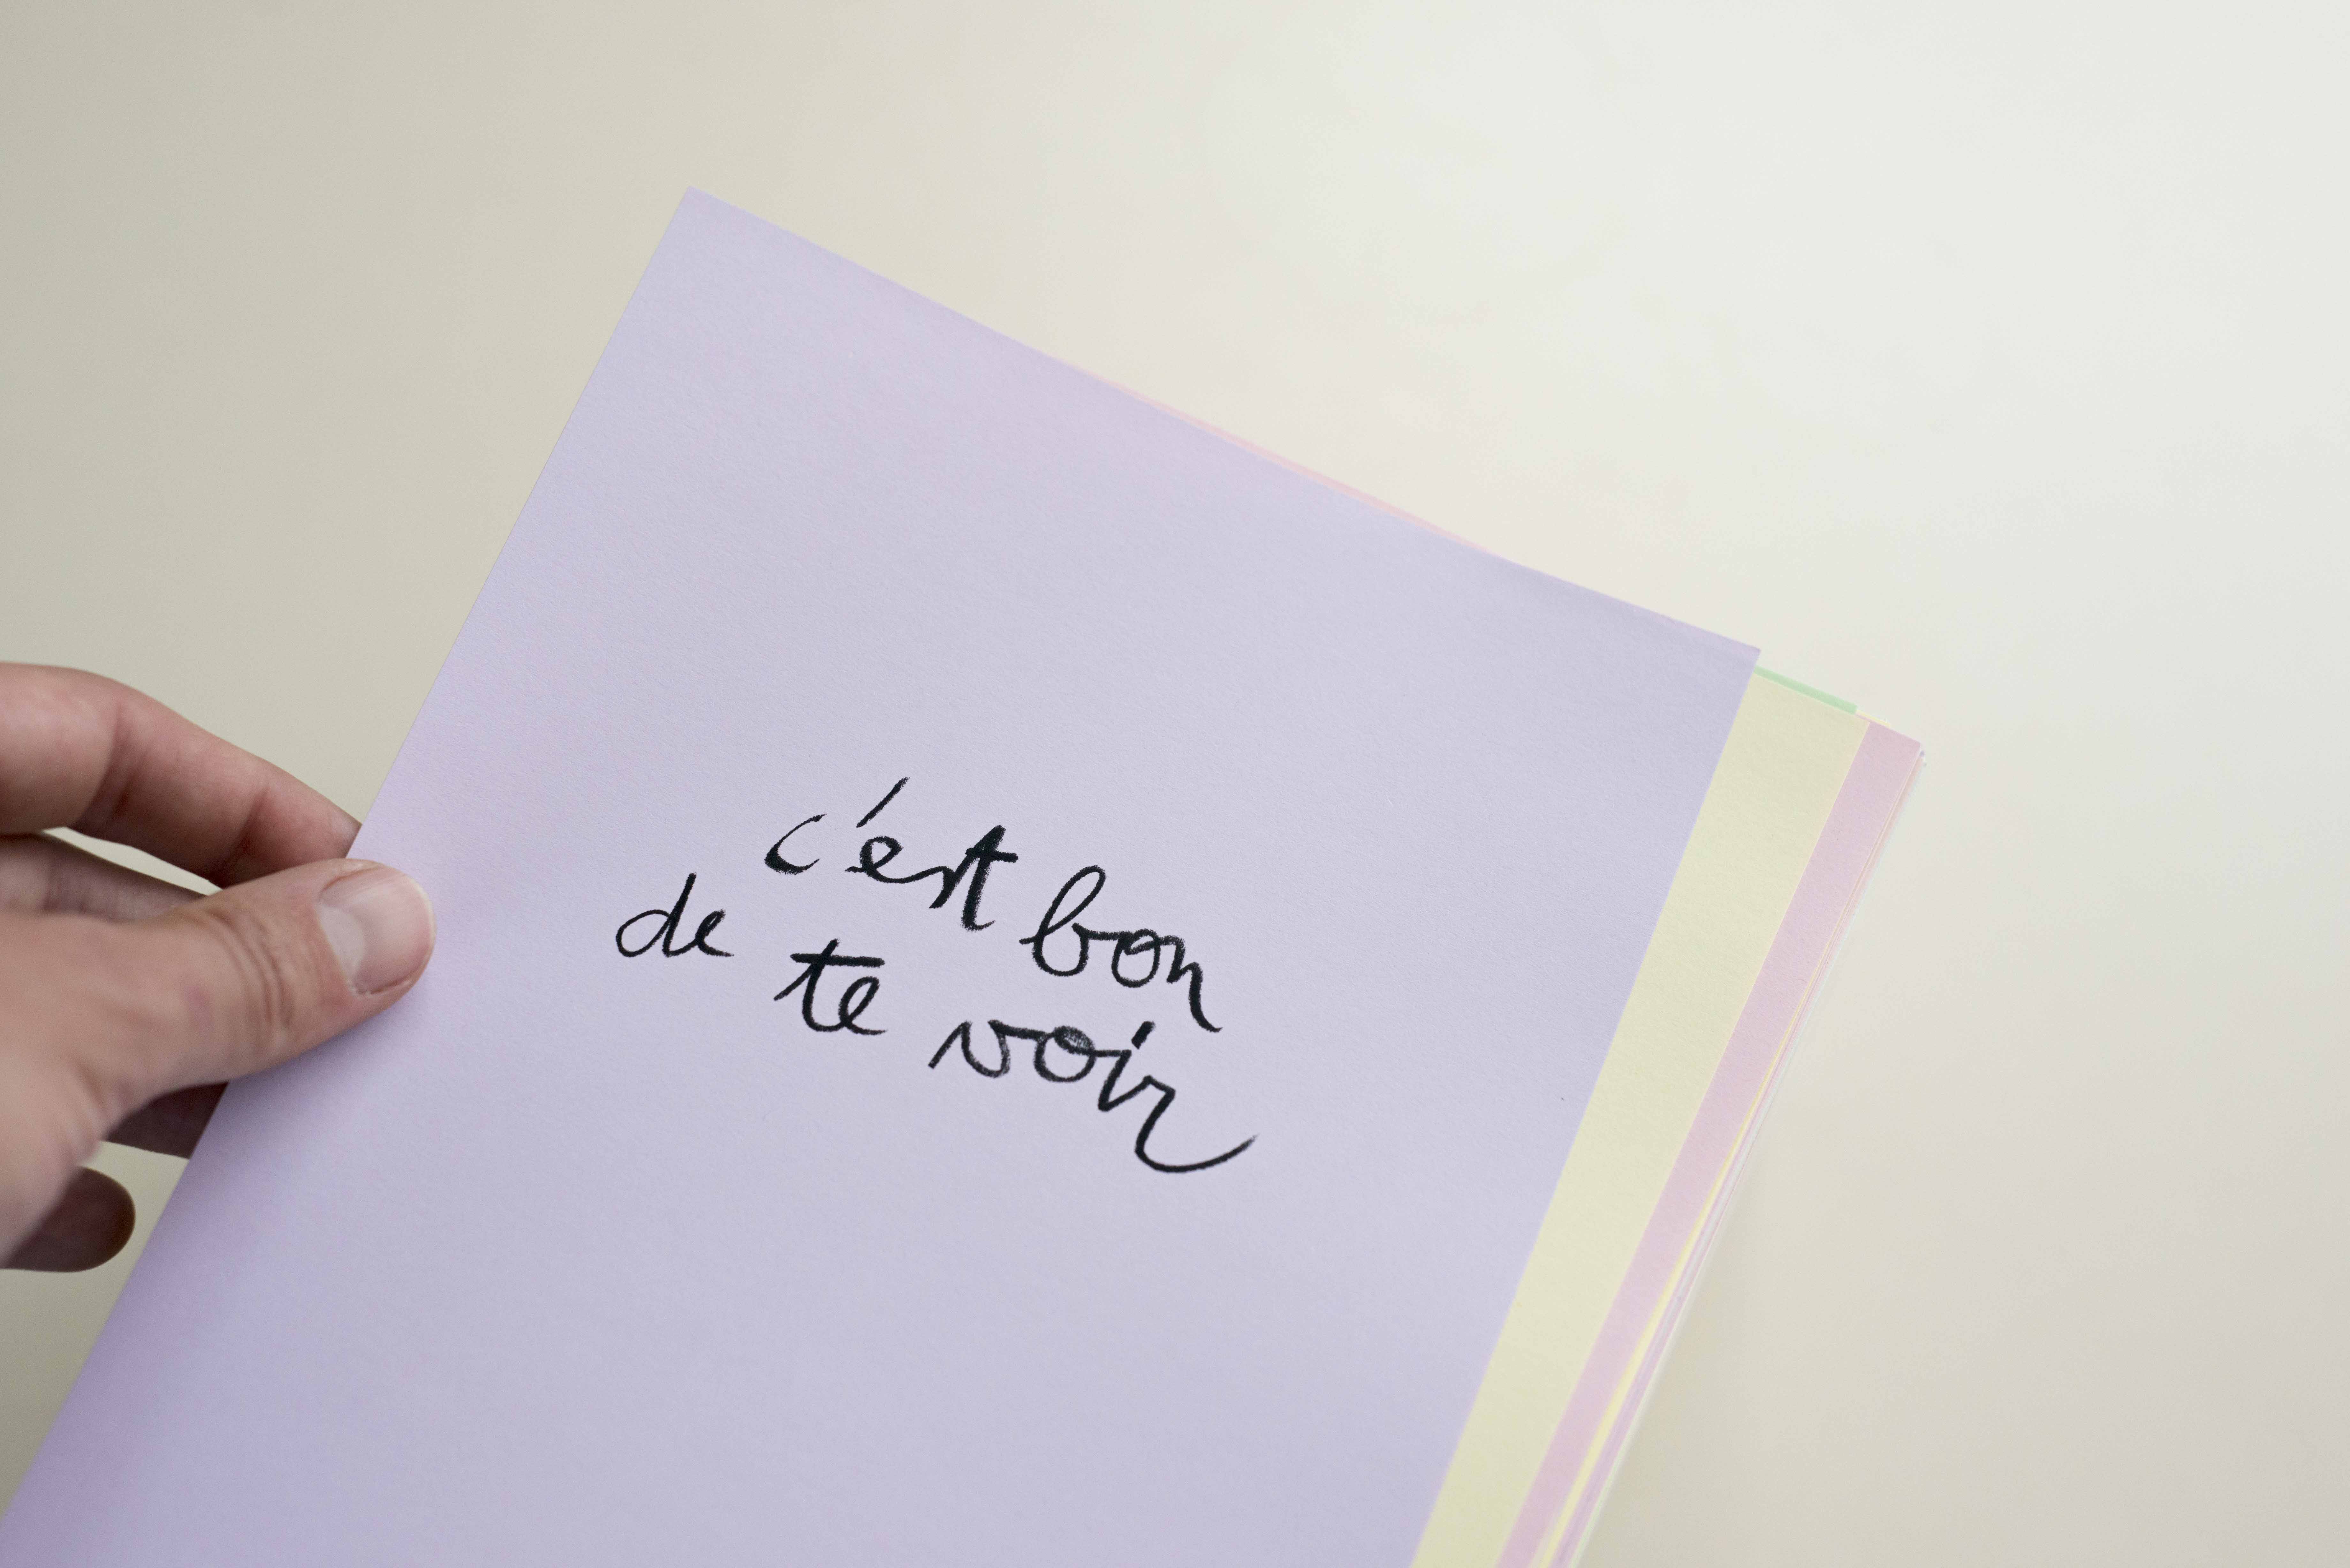 c'est bon
de te voir